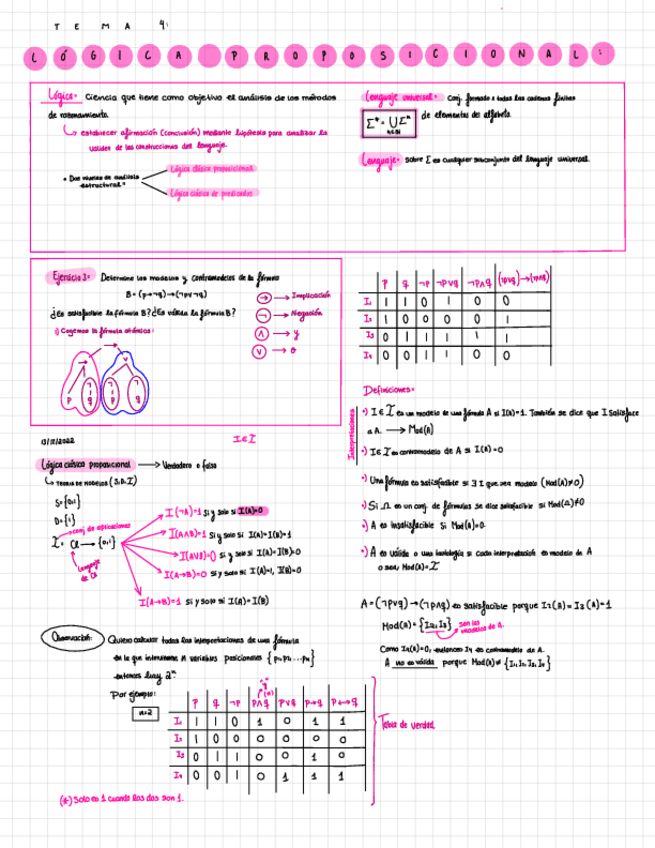 TEMA 4:
LÓGICA PROPOSICIONAL:
Lógica: Ciencia que tiene como objetivo el análisis de los métodos
de razonamiento.
↳ establecer afirmación (conclusión) mediante hipótesis para analizar la
validez de las construcciones del lenguaje.
• Dos niveles de análisis
estructural:
Lógica clásica proposicional
Lógica clásica de predicados
Lenguaje universal: Conj. formado x todas las cadenas finitas
de elementos de alfabeto.
Lenguaje: sobre Σ es cualquier subconjunto del lenguaje universal.
Ejercicio 3: Determine los modelos y contramodelos de la fórmula
B = (p→¬q)→(¬p∨¬q)
¿Es satisfacible la fórmula B? ¿Es válida la fórmula B?
1) Cogemos la fórmula atómica:
→ → Implicación
¬ → Negación
∧ → y
∨ → o
p ¬ q ¬ p ¬ q
p q ¬p ¬p∨q ¬p∧q (¬p∨q)→(¬p∧q)
I₁ 1 1 0 1 0 0
I₂ 1 0 0 0 0 1
I₃ 0 1 1 1 1 1
I₄ 0 0 1 1 0 0
Definiciones:
Interpretaciones
•) I ∈ I es un modelo de una fórmula A si I(A)=1. También se dice que I satisface
a A. → Mod(A)
•) I ∈ I es contramodelo de A si I(A)=0
•) Una fórmula es satisfacible si ∃ I que sea modelo (Mod(A)≠0)
•) Si Ω es un conj. de fórmulas se dice satisfacible si Mod(Ω)≠0
•) A es insatisfacible si Mod(A)=0.
•) A es válida o una tautología si cada interpretación es modelo de A
o sea, Mod(A)=I
13/11/2022
I ∈ I
Lógica clásica proposicional → Verdadero o falso
↳ TEORIA DE MODELOS (S,D,I)
S={0,1}
D={1}
conj de aplicaciones
→ {0,1}
Lenguaje
de
I(¬A)=1 si y solo si I(A)=0
I(A∧B)=1 si y solo si I(A)=I(B)=1
I(A∨B)=0 si y solo si I(A)=I(B)=0
I(A→B)=0 si y solo si I(A)=1, I(B)=0
I(A↔B)=1 si y solo si I(A)=I(B)
A=(¬p∨q)→(¬p∧q) es satisfacible porque I₂(A)=I₃(A)=1
Mod(A)={I₂,I₃} son los
modelos de A.
Como I₄(A)=0, entonces I₄ es contramodelo de A.
A no es válida porque Mod(A)≠{I₁,I₂,I₃,I₄}
Observación: Quiero calcular todas las interpretaciones de una fórmula
en la que intervienen n variables
entonces hay 2ⁿ
Por ejemplo:
n=2
p q ¬p p∧q p∨q p→q p↔q
I₁ 1 1 0 1 0 1 1
I₂ 1 0 0 0 0 0 0
I₃ 0 1 1 0 0 1 0
I₄ 0 0 1 0 1 1 1
Tabla de verdad.
(*) Solo es 1 cuando los dos son 1.